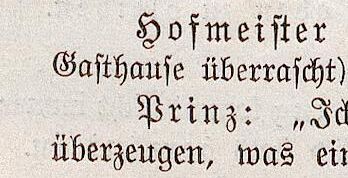 Hofmeiſter
Gaſthauſe überraſcht)
Prinz: „Ic
überzeugen, was ein